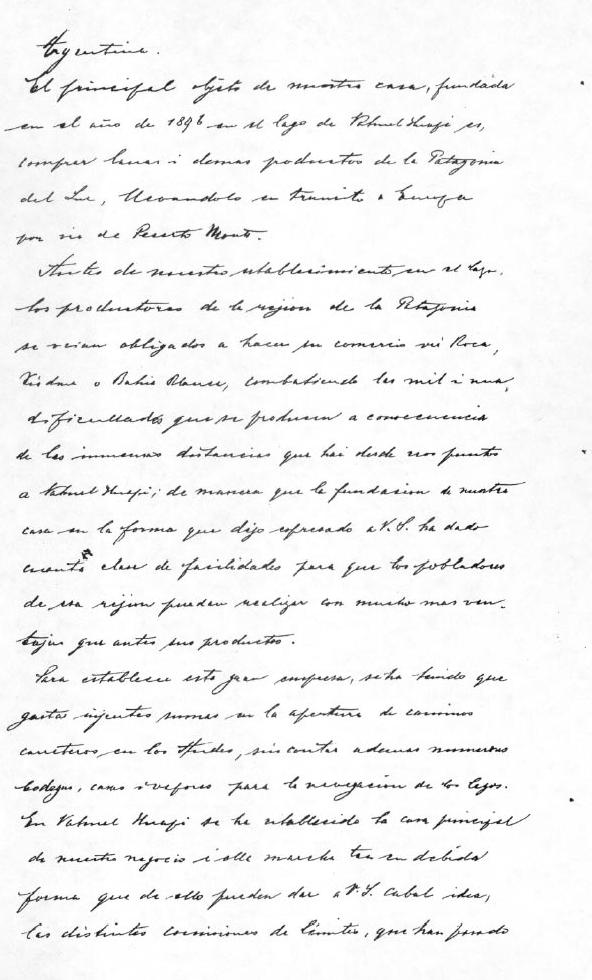 Argentina.
El principal objeto de nuestra casa, fundada
en el año de 1896 en el lago de Nahuel Huapi es,
comprar lanas i demas productos de la Patagonia
del Sur, llevandolo en transito a Europa
por via de Puerto Montt.
Antes de nuestro establecimiento en el lago,
los productores de la rejion de la Patagonia
se veian obligados a hacer su comercio via Roca,
Viedma o Bahia Blanca, combatiendo las mil i una,
dificultades que se producen a consecuencia
de las inmensas distancias que hai desde esos puntos
a Nahuel Huapi; de manera que la fundacion de nuestra
casa en la forma que dejo espresado a V.S. ha dado
cuanta clase de facilidades para que los pobladores
de esa rejion puedan realizar con mucho mas ven-
tajas que antes sus productos.
Para establecer esta gran empresa, se ha tenido que
gastar injentes sumas en la apertura de caminos
carreteros en los Andes, sin contar ademas numerosas
bodegas, casas i vapores para la navegacion de los lagos.
En Nahuel Huapi se ha establecido la casa principal
de nuestro negocio i alli marcha tan en debida
forma que de ello pueden dar a V.S. cabal idea,
las distintas comisiones de Limites, que han pasado